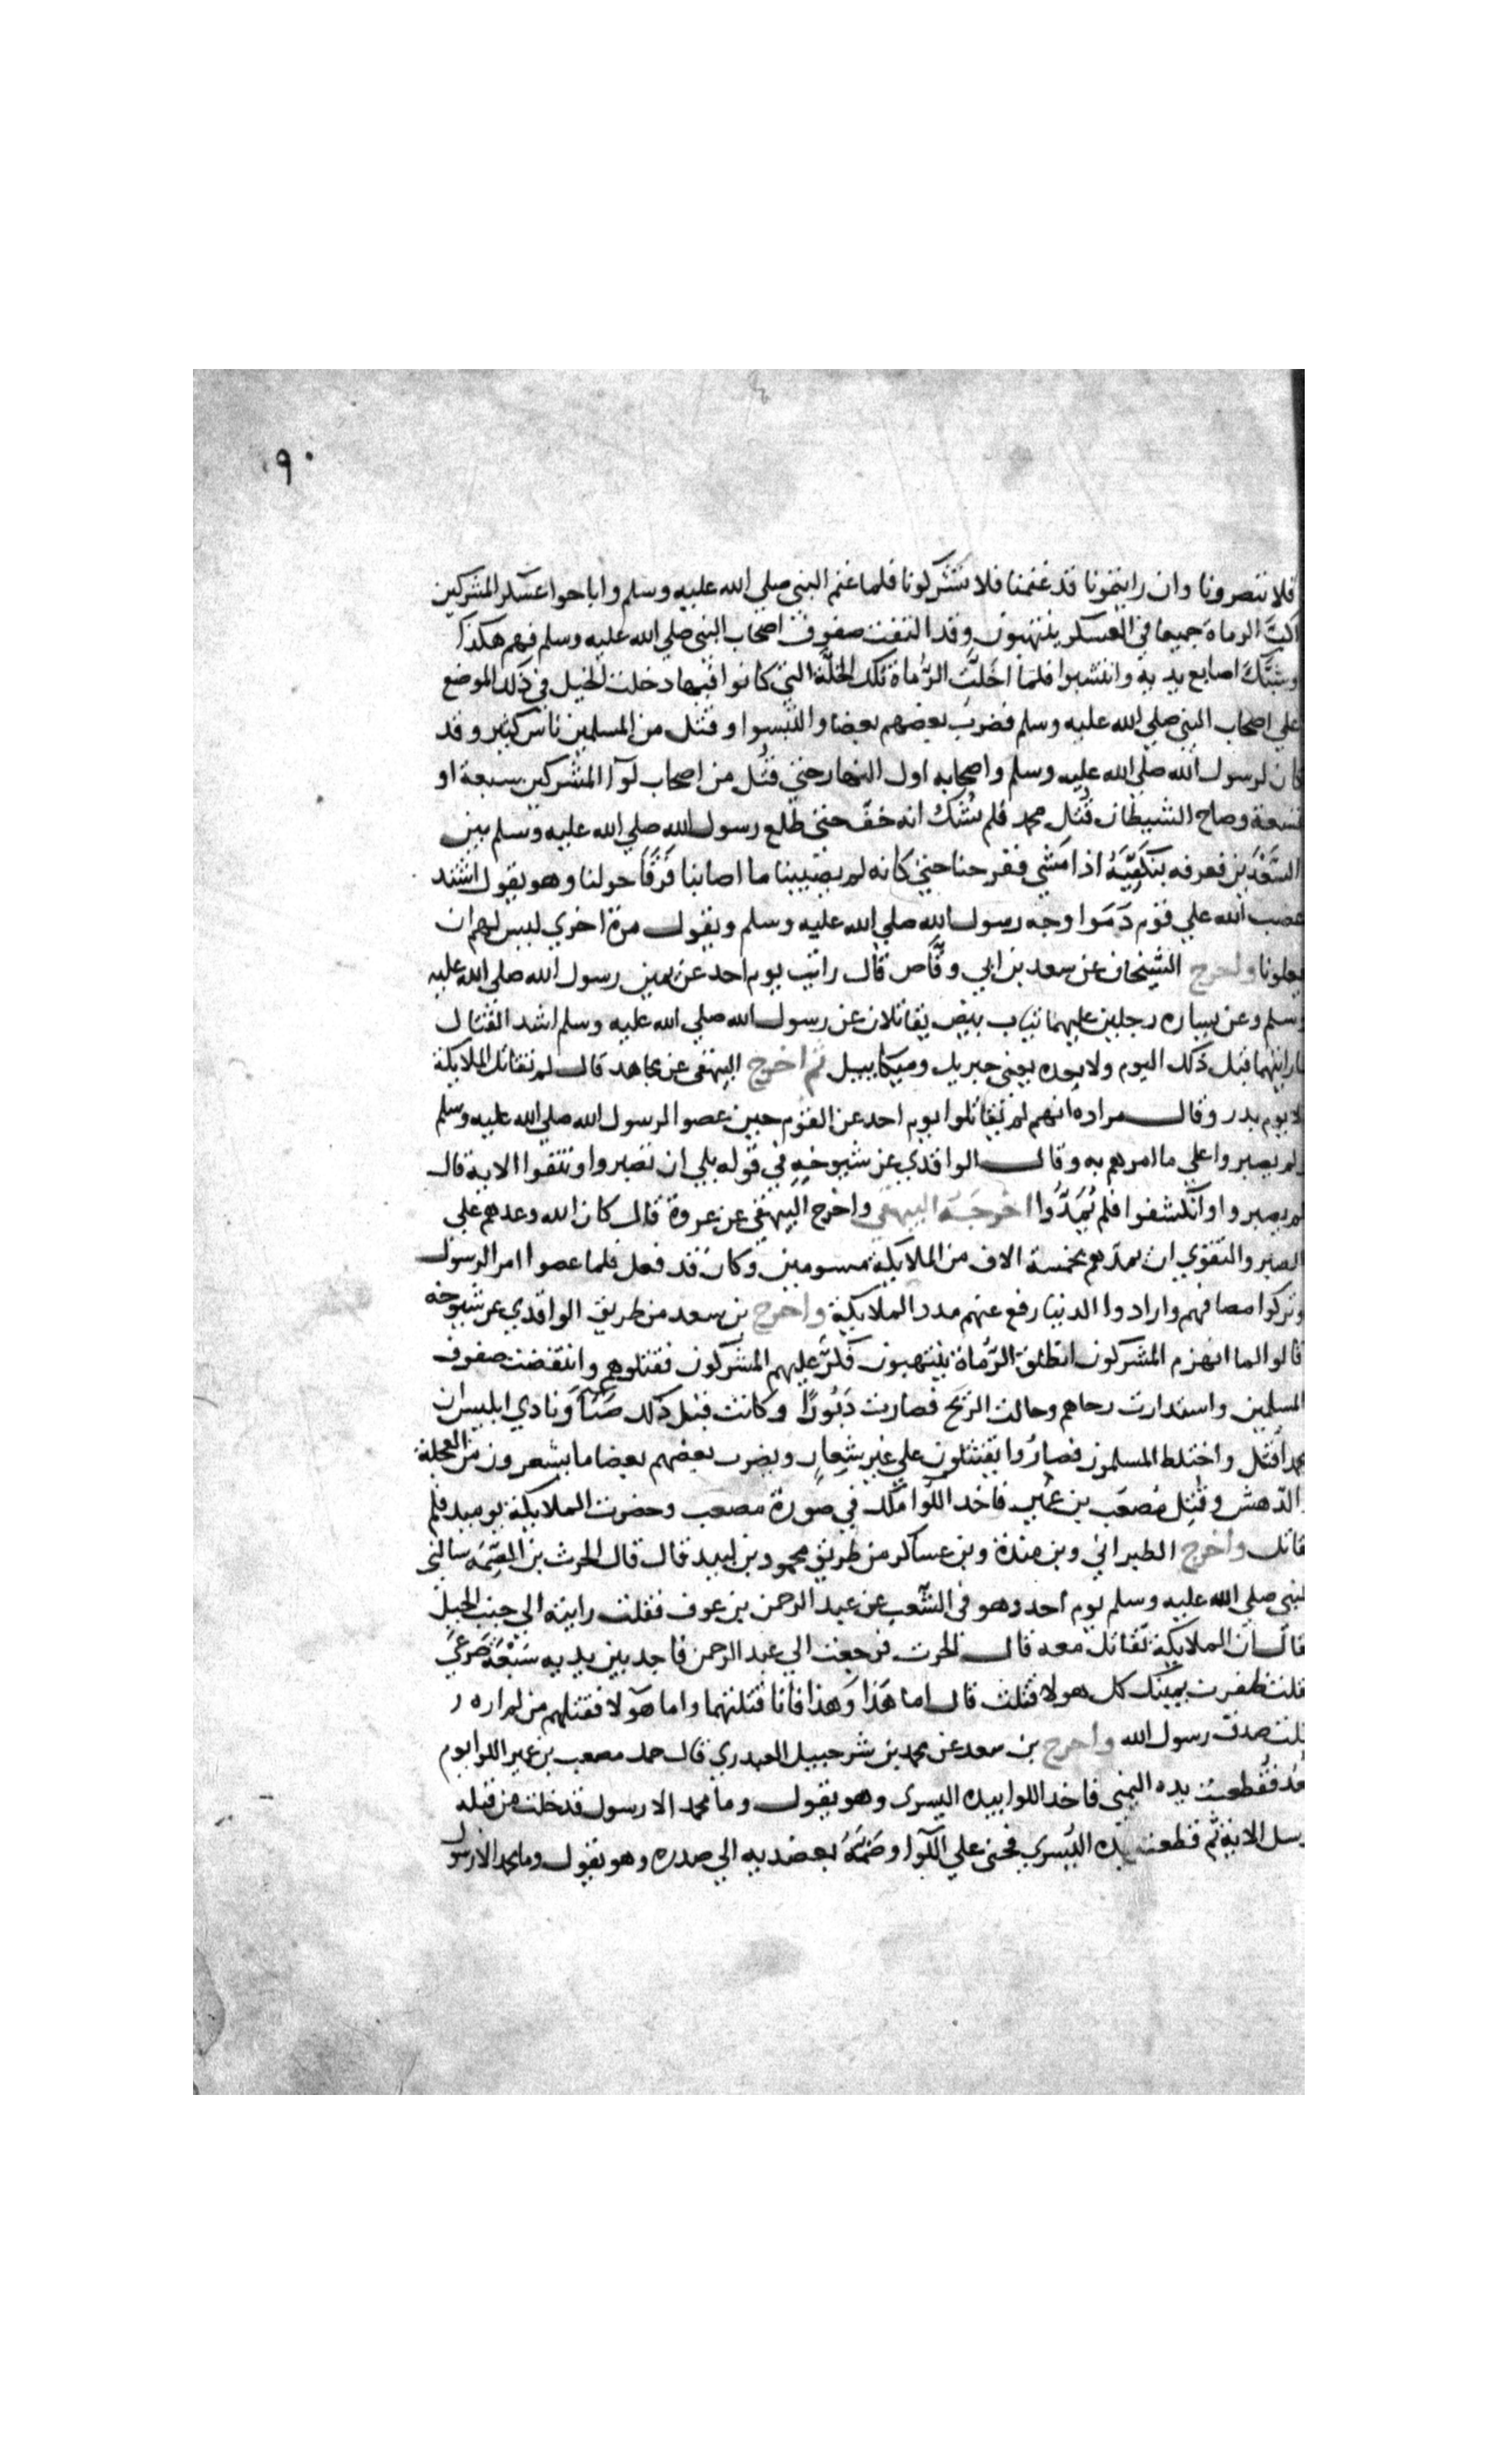 ٩٠
فلا تنصرونا وان رايتمونا قد غنمنا فلا تشركونا فلما غنم النبي صلي الله عليه وسلم واباحوا عسكر المشركين
اكبّ الرماة جميعا في العسكر ينتهبون وقد التفت صفوف اصحاب النبي صلي الله عليه وسلم فهم هكذا
وشبّك اصابع يديه وانتشبوا فلما اخلّت الرُّماة تلك الخلّة التي كانوا فيها دخلت الخيل في ذلك الموضع
علي اصحاب النبي صلي الله عليه وسلم فضرب بعضهم بعضا والتبسوا وقتل من المسلمين ناس كثير وقد
كان لرسول الله صلي الله عليه وسلم واصحابه اول النهار حتي قُتل من اصحاب لوآ المشركين سبعة او
تسعة وصاح الشيطان قُتل محمد فلم نشك انه حقّ حتي طلع رسول الله صلي الله عليه وسلم بين
السَّعْدَين فعرفه بتكفّيَهُ اذا مشي ففرحنا حتي كانه لم يصيبنا ما اصابنا فَرَقَا حولنا وهو يقول اشتد
غضب الله علي قوم دَمَوا وجه رسول الله صلي الله عليه وسلم ويقول مرة اخري ليس لهم ان
يعلونا واخرج الشيخان عن سعد بن ابي وقّاص قال رايت يوم احد عن يمين رسول الله صلي الله عليه
وسلم وعن يساره رجلين عليهما ثياب بيض يقاتلان عن رسول الله صلي الله عليه وسلم اشد القتال
ما رايتهما قبل ذلك اليوم ولا بعده يعني جبريل وميكاييل ثم اخرج البيهقي عن مجاهد قال لم تقاتل الملايكة
الا يوم بدر وقال مراده انهم لم يقاتلوا يوم احد عن القوم حين عصوا الرسول الله صلي الله عليه وسلم
ولم يصبروا علي ما امرهم به وقال الواقدي عن شيوخهِ في قوله بلي ان تصبروا وتتقوا الاية قال
لم يصبروا وانكشفوا فلم يُمَدُّوا اخرجَهُ البيهقي واخرج البيهقي عن عروة قال كان الله وعدهم علي
الصبر والتقوي ان يمدهم بخمسة الاف من الملايكة مسومين وكان قد فعل فلما عصوا امر الرسول
وتركوا مصافهم وارادوا الدنيا رفع عنهم مدد الملايكة واخرج بن سعد من طريق الواقدي عن شيوخه
قالوا لما انهزم المشركون انطلق الرُّماة ينتهبون فكرَّ عليهم المشركون فقتلوهم وانتقضت صفوف
المسلمين واستدارت رحاهم وحالت الريح فصارت دَبُورًا وكانت قبل ذلك صَبَاً ونادي ابليس ان
محمدا قُتل واختلط المسلمون فصارُوا يقتتلون علي غير شعار ويضرب بعضهم بعضا ما يشعرون من العجلة
والدّهش وقُتِل مُصعَب بن عُمير فاخد اللّوا ملَك في صورة مصعب وحضرت الملايكة يوميد فلم
تقاتل واخرج الطبراني وبن مندة وبن عساكر من طريق محمود بن لبيد قال قال الحرث بن الصّمة سالني
النبي صلي الله عليه وسلم يوم احد وهو في الشّعب عن عبد الرحمن بن عوف فقلت رايته الي جنب الجبل
قال ان الملايكة تقاتل معه قال الحرث فرجعت الي عبد الرحمن فاجد بين يديه سَبْعَة صَرعَي
قلت ظفرت يمينك كل هولا قتلت قال اما هَذا وَهذا فانا قتلتهما واما هَوُلا فقتلهم من لم اره
قلت صدق رسول الله واخرج بن سعد عن محمد بن شرحبيل العبدري قال حمل مصعب بن عمير اللوا يوم
احد فقُطعت يده اليمني فاخد اللوا بيده اليسري وهو يقول وما محمد الا رسول قد خلت من قبله
الرسل الاية ثم قطعت يده اليُسري فحني علي اللّوا وضَمّهُ بعضديه الي صدره وهو يقول وما محمد الا رسول